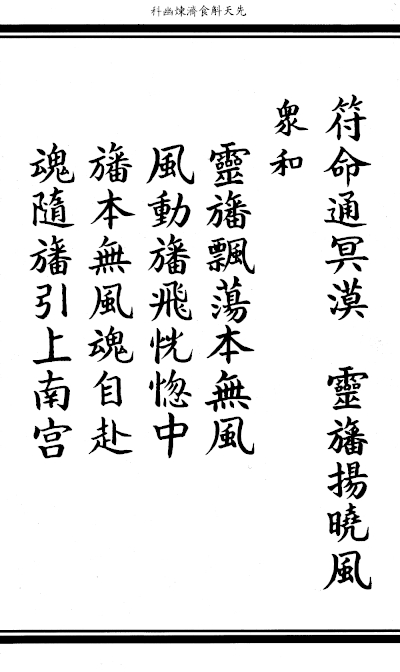 先天斛食濟煉幽科
符命通冥漠　靈旛揚曉風
衆和
靈旛飄蕩本無風
風動旛飛恍惚中
旛本無風魂自赴
魂隨旛引上南宮